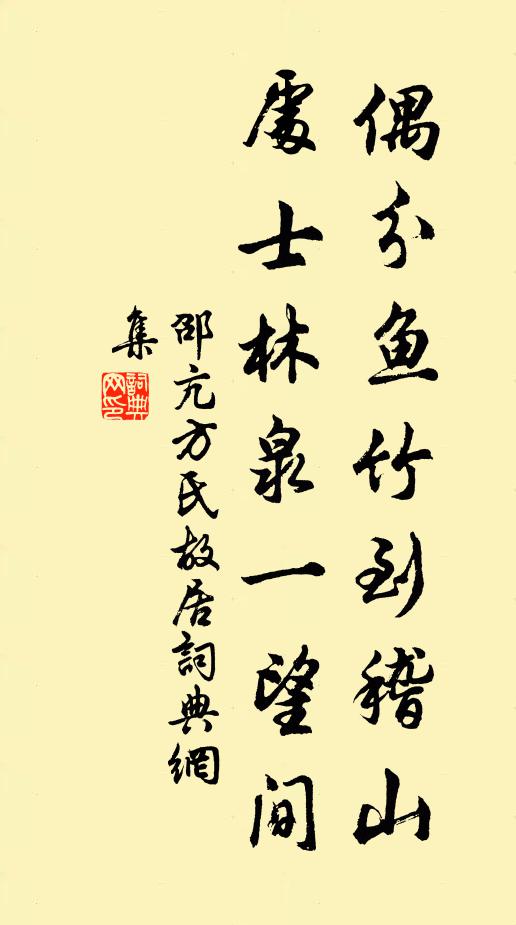 偶分鱼竹到稽山
處士林泉一望间
邵亢方氏故居詞典網
集
詞典
网印